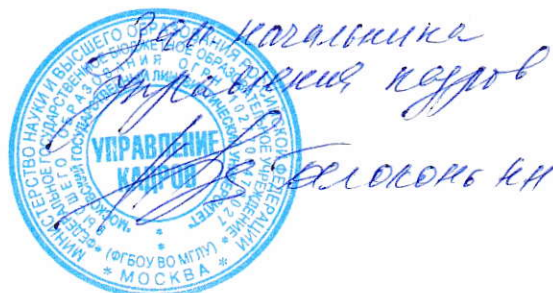 Зам начальника
Управления кадров
Белоконь НН
МИНИСТЕРСТВО НАУКИ И ВЫСШЕГО ОБРАЗОВАНИЯ РОССИЙСКОЙ ФЕДЕРАЦИИ
ФЕДЕРАЛЬНОЕ ГОСУДАРСТВЕННОЕ БЮДЖЕТНОЕ ОБРАЗОВАТЕЛЬНОЕ УЧРЕЖДЕНИЕ
ВЫСШЕГО ОБРАЗОВАНИЯ
"МОСКОВСКИЙ ГОСУДАРСТВЕННЫЙ ЛИНГВИСТИЧЕСКИЙ УНИВЕРСИТЕТ"
УПРАВЛЕНИЕ
КАДРОВ
(ФГБОУ ВО МГЛУ)
* МОСКВА *